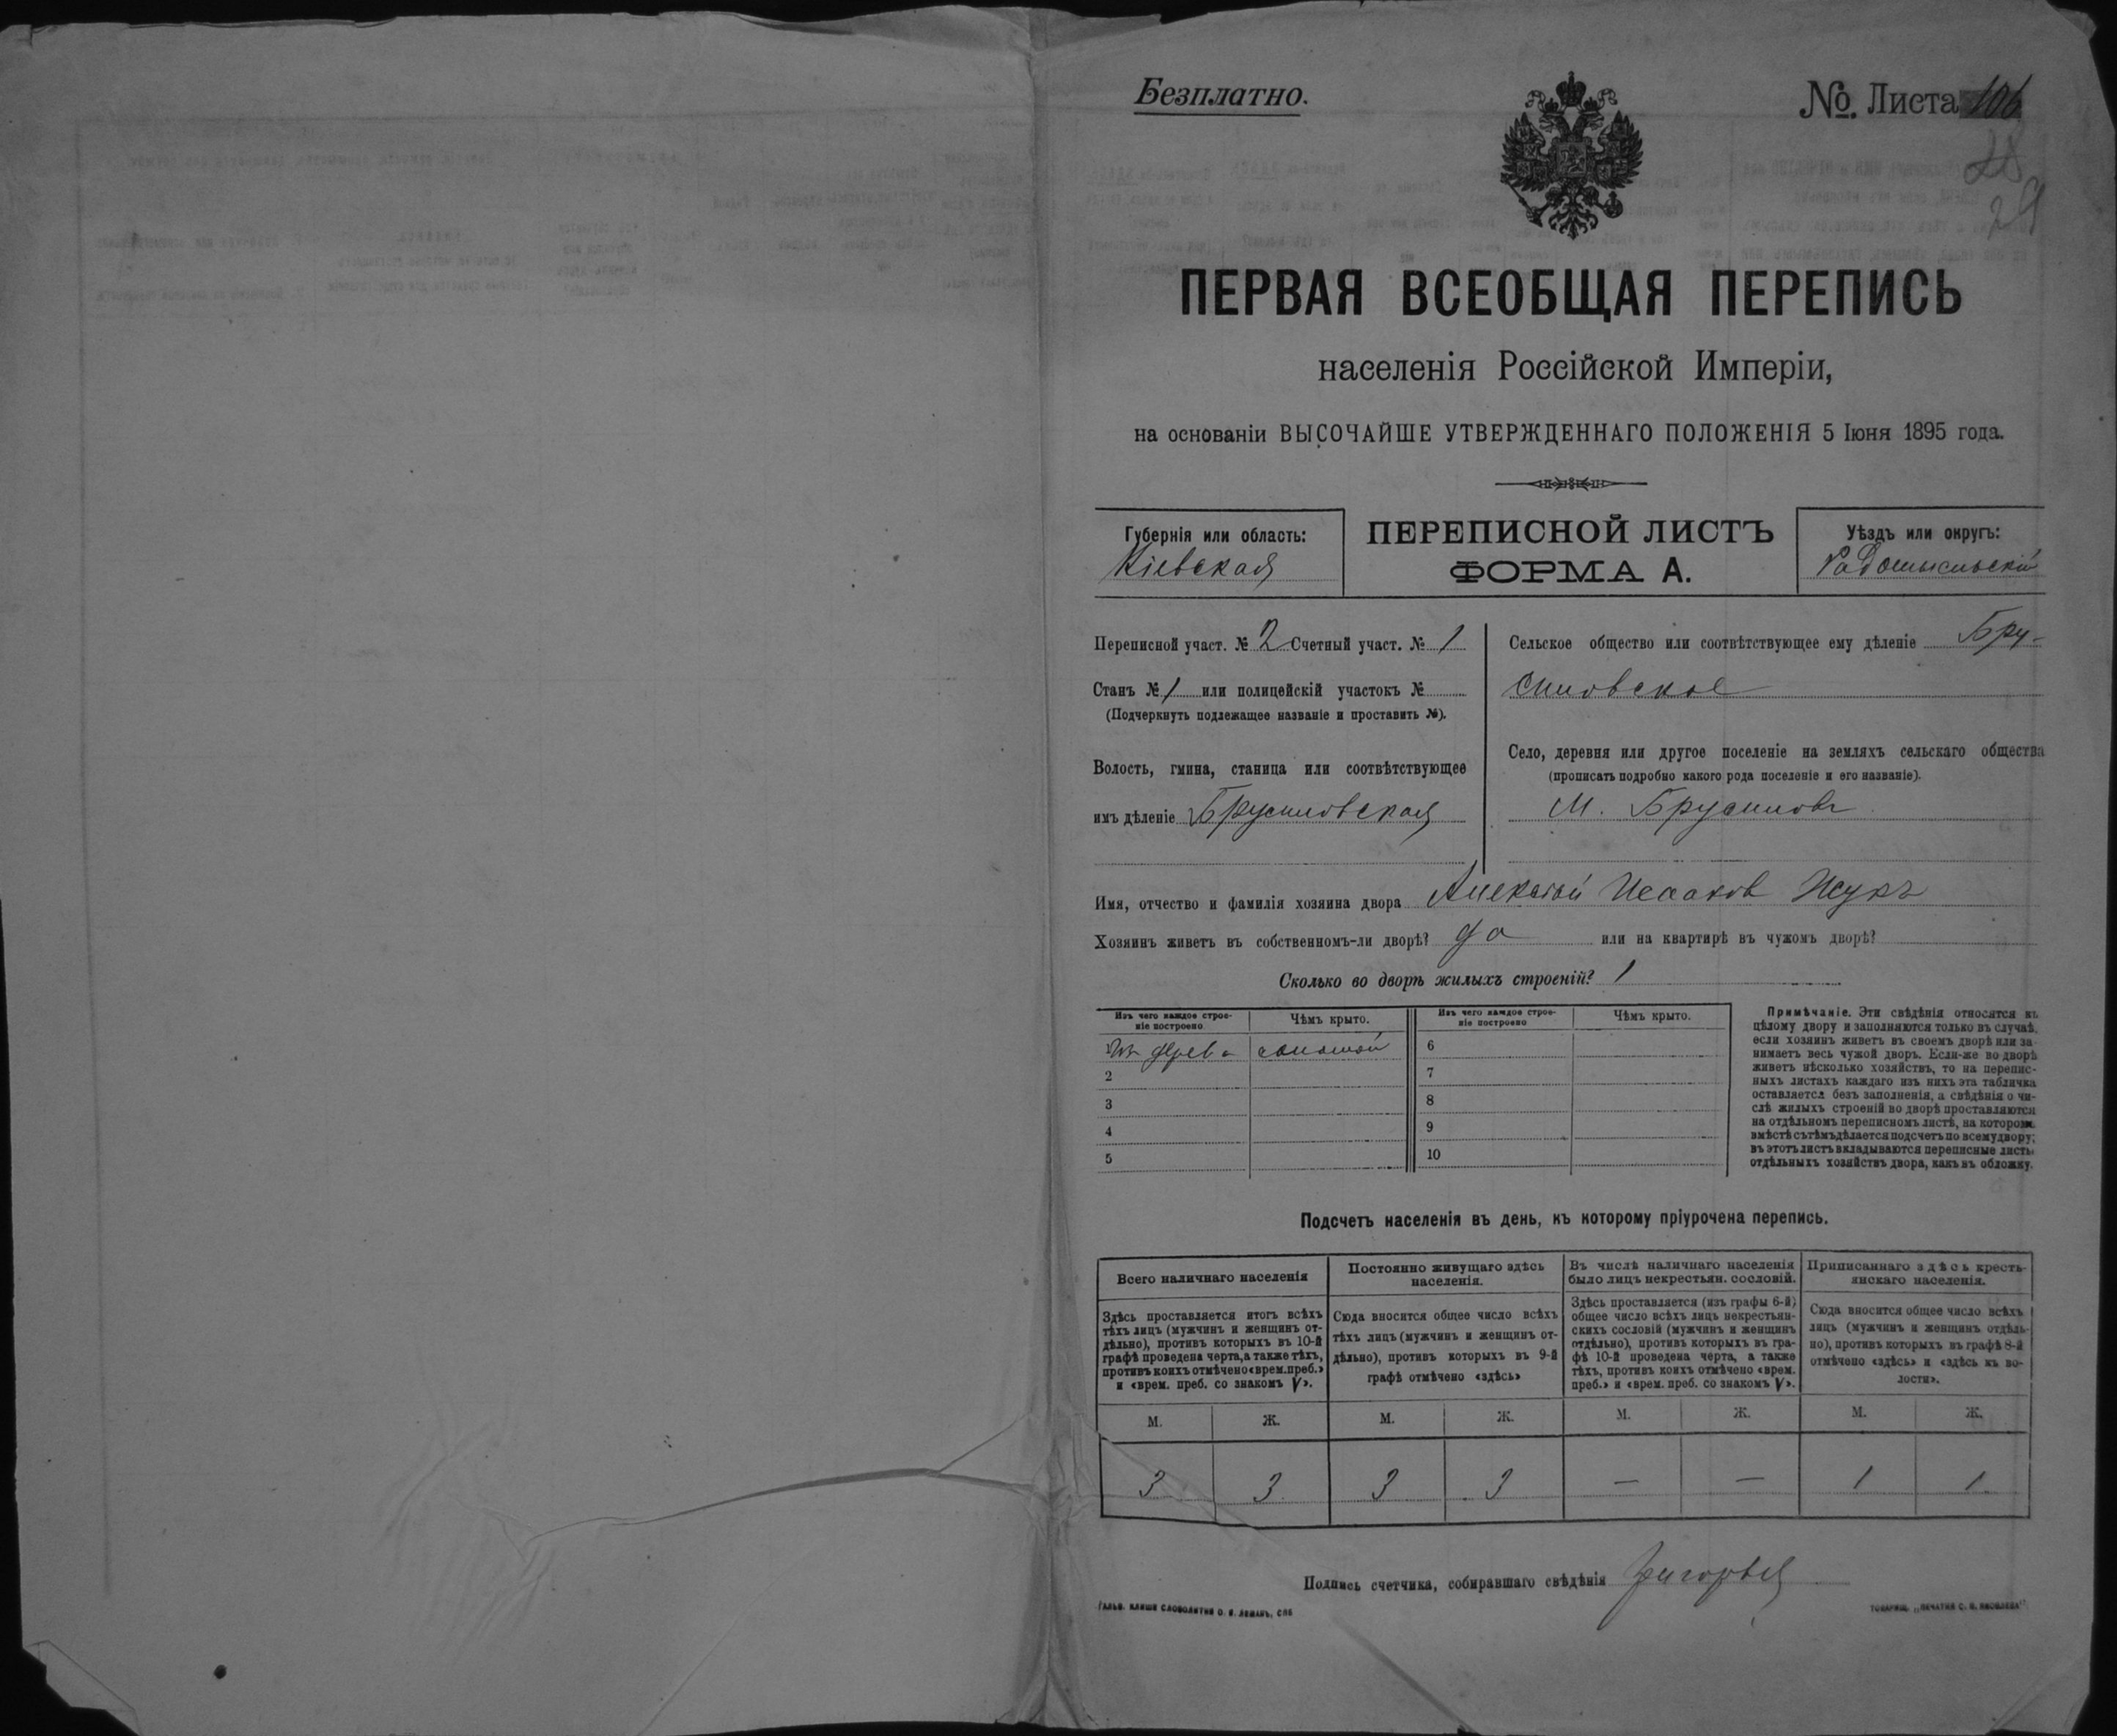 Безплатно.
№ Листа 106
28
29
ПЕРВАЯ ВСЕОБЩАЯ ПЕРЕПИСЬ
населенія Россійской Имперіи,
на основаніи ВЫСОЧАЙШЕ УТВЕРЖДЕННАГО ПОЛОЖЕНІЯ 5 Іюня 1895 года.
Губернія или область:
Кіевская
ПЕРЕПИСНОЙ ЛИСТЪ
ФОРМА А.
Уѣздъ или округъ:
Радомысльскій
Переписной участ. № 2 Счетный участ. № 1
Станъ № 1 или полицейскій участокъ №
(Подчеркнуть подлежащее названіе и проставить №).
Волость, гмина, станица или соотвѣтствующее
имъ дѣленіе Брусиловская
Сельское общество или соотвѣтствующее ему дѣленіе Бру-
силовское
Село, деревня или другое поселеніе на земляхъ сельскаго общества
(прописать подробно какого рода поселеніе и его названіе).
М. Брусиловъ
Имя, отчество и фамилія хозяина двора Алексѣй Исааков Жукъ
Хозяинъ живетъ въ собственномъ-ли дворѣ? да или на квартирѣ въ чужомъ дворѣ?
Сколько во дворѣ жилыхъ строеній? 1
Изъ чего каждое строе-
ніе построено
Чѣмъ крыто.
Изъ чего каждое строе-
ніе построено
Чѣмъ крыто.
Изъ дерева соломой 6
2 7
3 8
4 9
5 10
Примѣчаніе. Эти свѣдѣнія относятся къ
цѣлому двору и заполняются только въ случаѣ,
если хозяинъ живетъ въ своемъ дворѣ или за-
нимаетъ весь чужой дворъ. Если-же во дворѣ
живетъ нѣсколько хозяйствъ, то на перепис-
ныхъ листахъ каждаго изъ нихъ эта табличка
оставляется безъ заполненія, а свѣдѣнія о чи-
слѣ жилыхъ строеній во дворѣ проставляются
на отдѣльномъ переписномъ листѣ, на которомъ
вмѣстѣ съ тѣмъ дѣлается подсчетъ по всему двору;
въ этотъ листъ вкладываются переписные листы
отдѣльныхъ хозяйствъ двора, какъ въ обложку.
Подсчетъ населенія въ день, къ которому пріурочена перепись.
Всего наличнаго населенія
Здѣсь проставляется итогъ всѣхъ
тѣхъ лицъ (мужчинъ и женщинъ от-
дѣльно), противъ которыхъ въ 10-й
графѣ проведена черта, а также тѣхъ,
противъ коихъ отмѣчено «врем. преб.»
и «врем. преб. со знакомъ V».
Постоянно живущаго здѣсь
населенія.
Сюда вносится общее число всѣхъ
тѣхъ лицъ (мужчинъ и женщинъ от-
дѣльно), противъ которыхъ въ 9-й
графѣ отмѣчено «здѣсь»
Въ числѣ наличнаго населенія
было лицъ некрестьян. сословій.
Здѣсь проставляется (изъ графы 6-й)
общее число всѣхъ лицъ некрестьян-
скихъ сословій (мужчинъ и женщинъ
отдѣльно), противъ которыхъ въ гра-
фѣ 10-й проведена черта, а также
тѣхъ, противъ коихъ отмѣчено «врем.
преб.» и «врем. преб. со знакомъ V».
Приписаннаго здѣсь кресть-
янскаго населенія.
Сюда вносится общее число всѣхъ
лицъ (мужчинъ и женщинъ отдѣль-
но), противъ которыхъ въ графѣ 8-й
отмѣчено «здѣсь» и «здѣсь къ во-
лости».
М. Ж. М. Ж. М. Ж. М. Ж.
3 3 3 3 — — 1 1
Подпись счетчика, собиравшаго свѣдѣнія
ГАЛЬВ. КЛИШЕ СЛОВОЛИТНИ О. И. ЛЕМАНЪ, СПБ
ТОВАРИЩ. „ПЕЧАТНЯ С. П. ЯКОВЛЕВА“